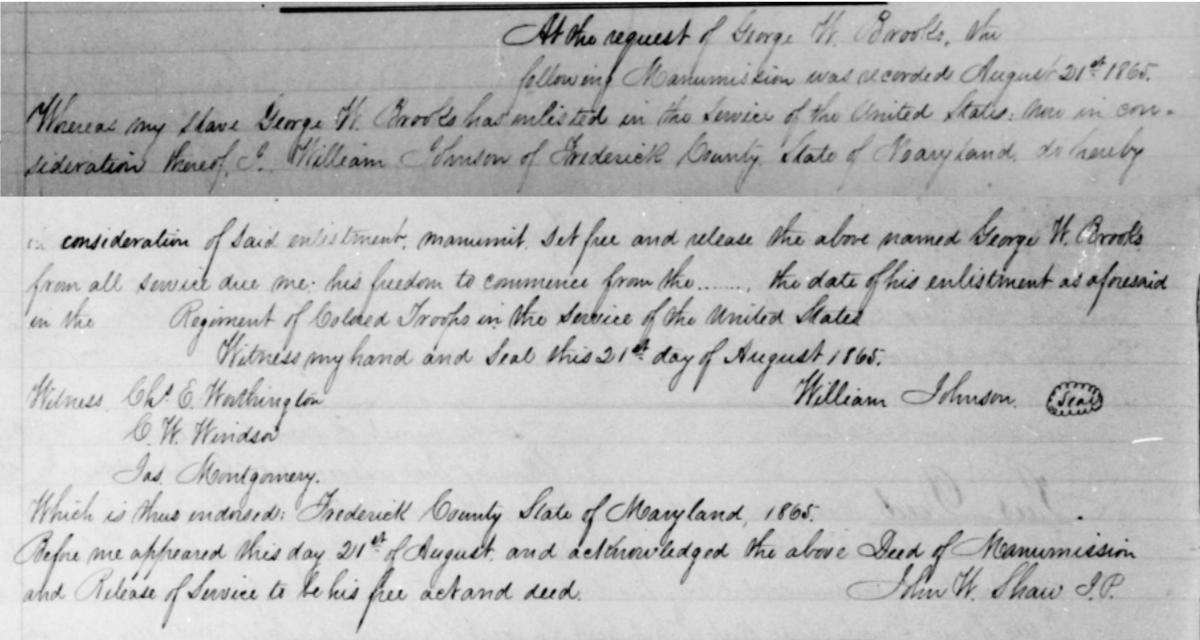 At the request of George W. Brooks, the
following Manumission was recorded August 21st 1865.
Whereas my slave George W. Brooks has enlisted in the service of the United States: now in con-
sideration thereof, I, William Johnson of Frederick County, State of Maryland, do hereby
in consideration of said enlistment, manumit, set free and release the above named George W. Brooks
from all service due me; his freedom to commence from the ........ the date of his enlistment as aforesaid
in the Regiment of Colored Troops in the service of the United States
Witness my hand and seal this 21st day of August 1865.
Witness Chs. E. Worthington William Johnson. Seal
C. W. Windsor
Jas. Montgomery.
Which is thus endorsed: Frederick County State of Maryland, 1865.
Before me appeared this day 21st of August, and acknowledged the above Deed of Manumission
and Release of Service to be his free act and deed. John W. Shaw J.P.